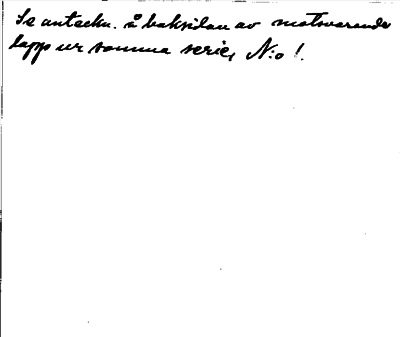 Se anteckn. å baksidan av motsvarande
lapp ur samma serie, N:o 1.